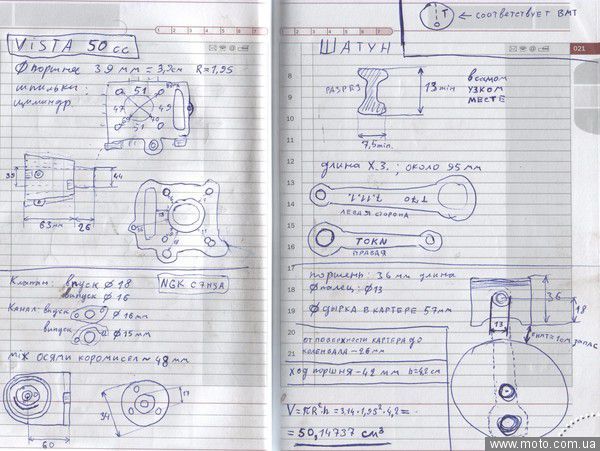 VISTA 50 cc
Ø поршня 39 мм = 3,9 см R=1,95
шпильки:
цилиндр.
51
47
49
51
39
44
63мм
26
Клапан: впуск Ø 18
выпуск Ø 16
NGK C7HSA
Канал: впуск Ø 16мм
выпуск Ø 15мм
між осями коромисел ~ 48 мм
34
17
60
Т ← соответствует ВМТ
ШАТУН
021
8
9
10
11
12
13
14
15
16
17
18
19
20
21
РАЗРЕЗ
13 min
в самом
узком
месте
7,5 min.
длина Х.З.; около 95 мм
ЛЕВАЯ СТОРОНА
TOKN
ПРАВАЯ
поршень: 36 мм длина
Ø палец: Ø13
Ø дырка в картере 57мм
36
18
13
от поверхности картера до
коленвала - 26 мм
ход поршня - 42 мм h=4,2см
V = πR²h = 3.14·1,95²·4,2 =
= 50,14737 см³
www.moto.com.ua